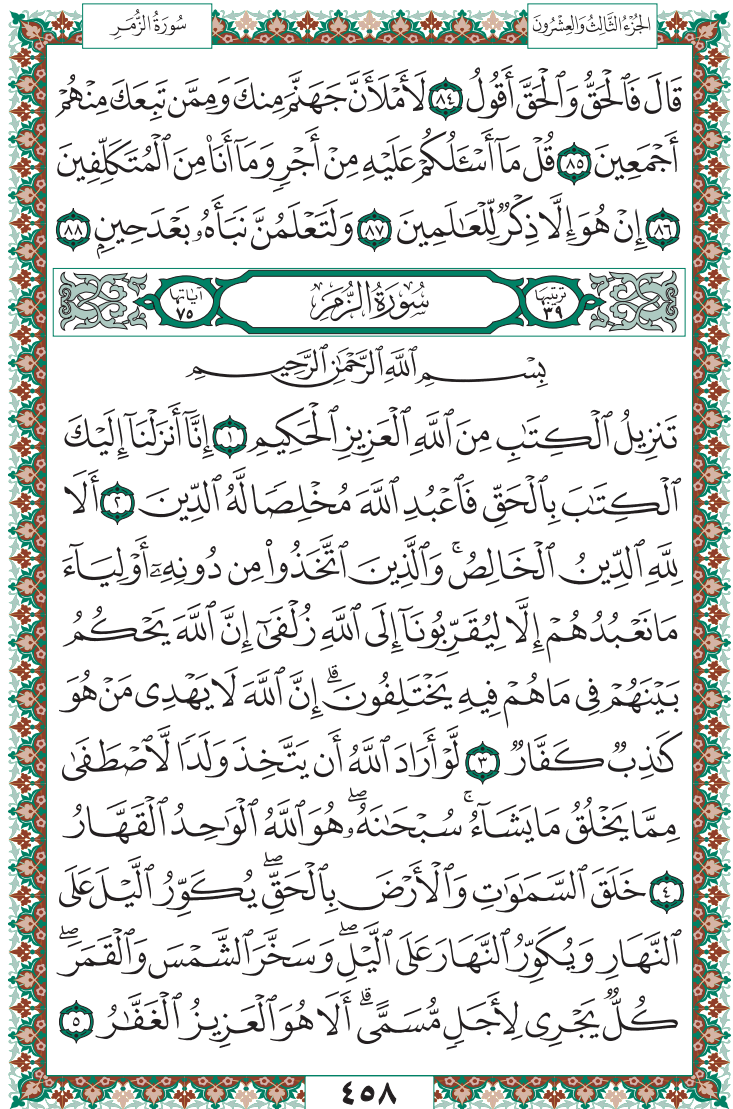 الجُزْءُ الثَّالِثُ وَالعِشْرُونَ
سُورَةُ الزُّمَرِ
قَالَ فَٱلۡحَقُّ وَٱلۡحَقَّ أَقُولُ ٨٤ لَأَمۡلَأَنَّ جَهَنَّمَ مِنكَ وَمِمَّن تَبِعَكَ مِنۡهُمۡ
أَجۡمَعِينَ ٨٥ قُلۡ مَآ أَسۡـَٔلُكُمۡ عَلَيۡهِ مِنۡ أَجۡرٖ وَمَآ أَنَا۠ مِنَ ٱلۡمُتَكَلِّفِينَ
٨٦ إِنۡ هُوَ إِلَّا ذِكۡرٞ لِّلۡعَٰلَمِينَ ٨٧ وَلَتَعۡلَمُنَّ نَبَأَهُۥ بَعۡدَ حِينِۭ ٨٨
ترتيبها ٣٩ سُورَةُ الزُّمَرِ آياتها ٧٥
بِسۡمِ ٱللَّهِ ٱلرَّحۡمَٰنِ ٱلرَّحِيمِ
تَنزِيلُ ٱلۡكِتَٰبِ مِنَ ٱللَّهِ ٱلۡعَزِيزِ ٱلۡحَكِيمِ ١ إِنَّآ أَنزَلۡنَآ إِلَيۡكَ
ٱلۡكِتَٰبَ بِٱلۡحَقِّ فَٱعۡبُدِ ٱللَّهَ مُخۡلِصٗا لَّهُ ٱلدِّينَ ٢ أَلَا
لِلَّهِ ٱلدِّينُ ٱلۡخَالِصُۚ وَٱلَّذِينَ ٱتَّخَذُواْ مِن دُونِهِۦٓ أَوۡلِيَآءَ
مَا نَعۡبُدُهُمۡ إِلَّا لِيُقَرِّبُونَآ إِلَى ٱللَّهِ زُلۡفَىٰٓ إِنَّ ٱللَّهَ يَحۡكُمُ
بَيۡنَهُمۡ فِي مَا هُمۡ فِيهِ يَخۡتَلِفُونَۗ إِنَّ ٱللَّهَ لَا يَهۡدِي مَنۡ هُوَ
كَٰذِبٞ كَفَّارٞ ٣ لَّوۡ أَرَادَ ٱللَّهُ أَن يَتَّخِذَ وَلَدٗا لَّٱصۡطَفَىٰ
مِمَّا يَخۡلُقُ مَا يَشَآءُۚ سُبۡحَٰنَهُۥۖ هُوَ ٱللَّهُ ٱلۡوَٰحِدُ ٱلۡقَهَّارُ
٤ خَلَقَ ٱلسَّمَٰوَٰتِ وَٱلۡأَرۡضَ بِٱلۡحَقِّۖ يُكَوِّرُ ٱلَّيۡلَ عَلَى
ٱلنَّهَارِ وَيُكَوِّرُ ٱلنَّهَارَ عَلَى ٱلَّيۡلِۖ وَسَخَّرَ ٱلشَّمۡسَ وَٱلۡقَمَرَۖ
كُلّٞ يَجۡرِي لِأَجَلٖ مُّسَمًّىۗ أَلَا هُوَ ٱلۡعَزِيزُ ٱلۡغَفَّٰرُ ٥
٤٥٨